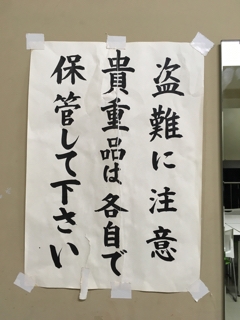 盗難に注意
貴重品は各自で
保管して下さい